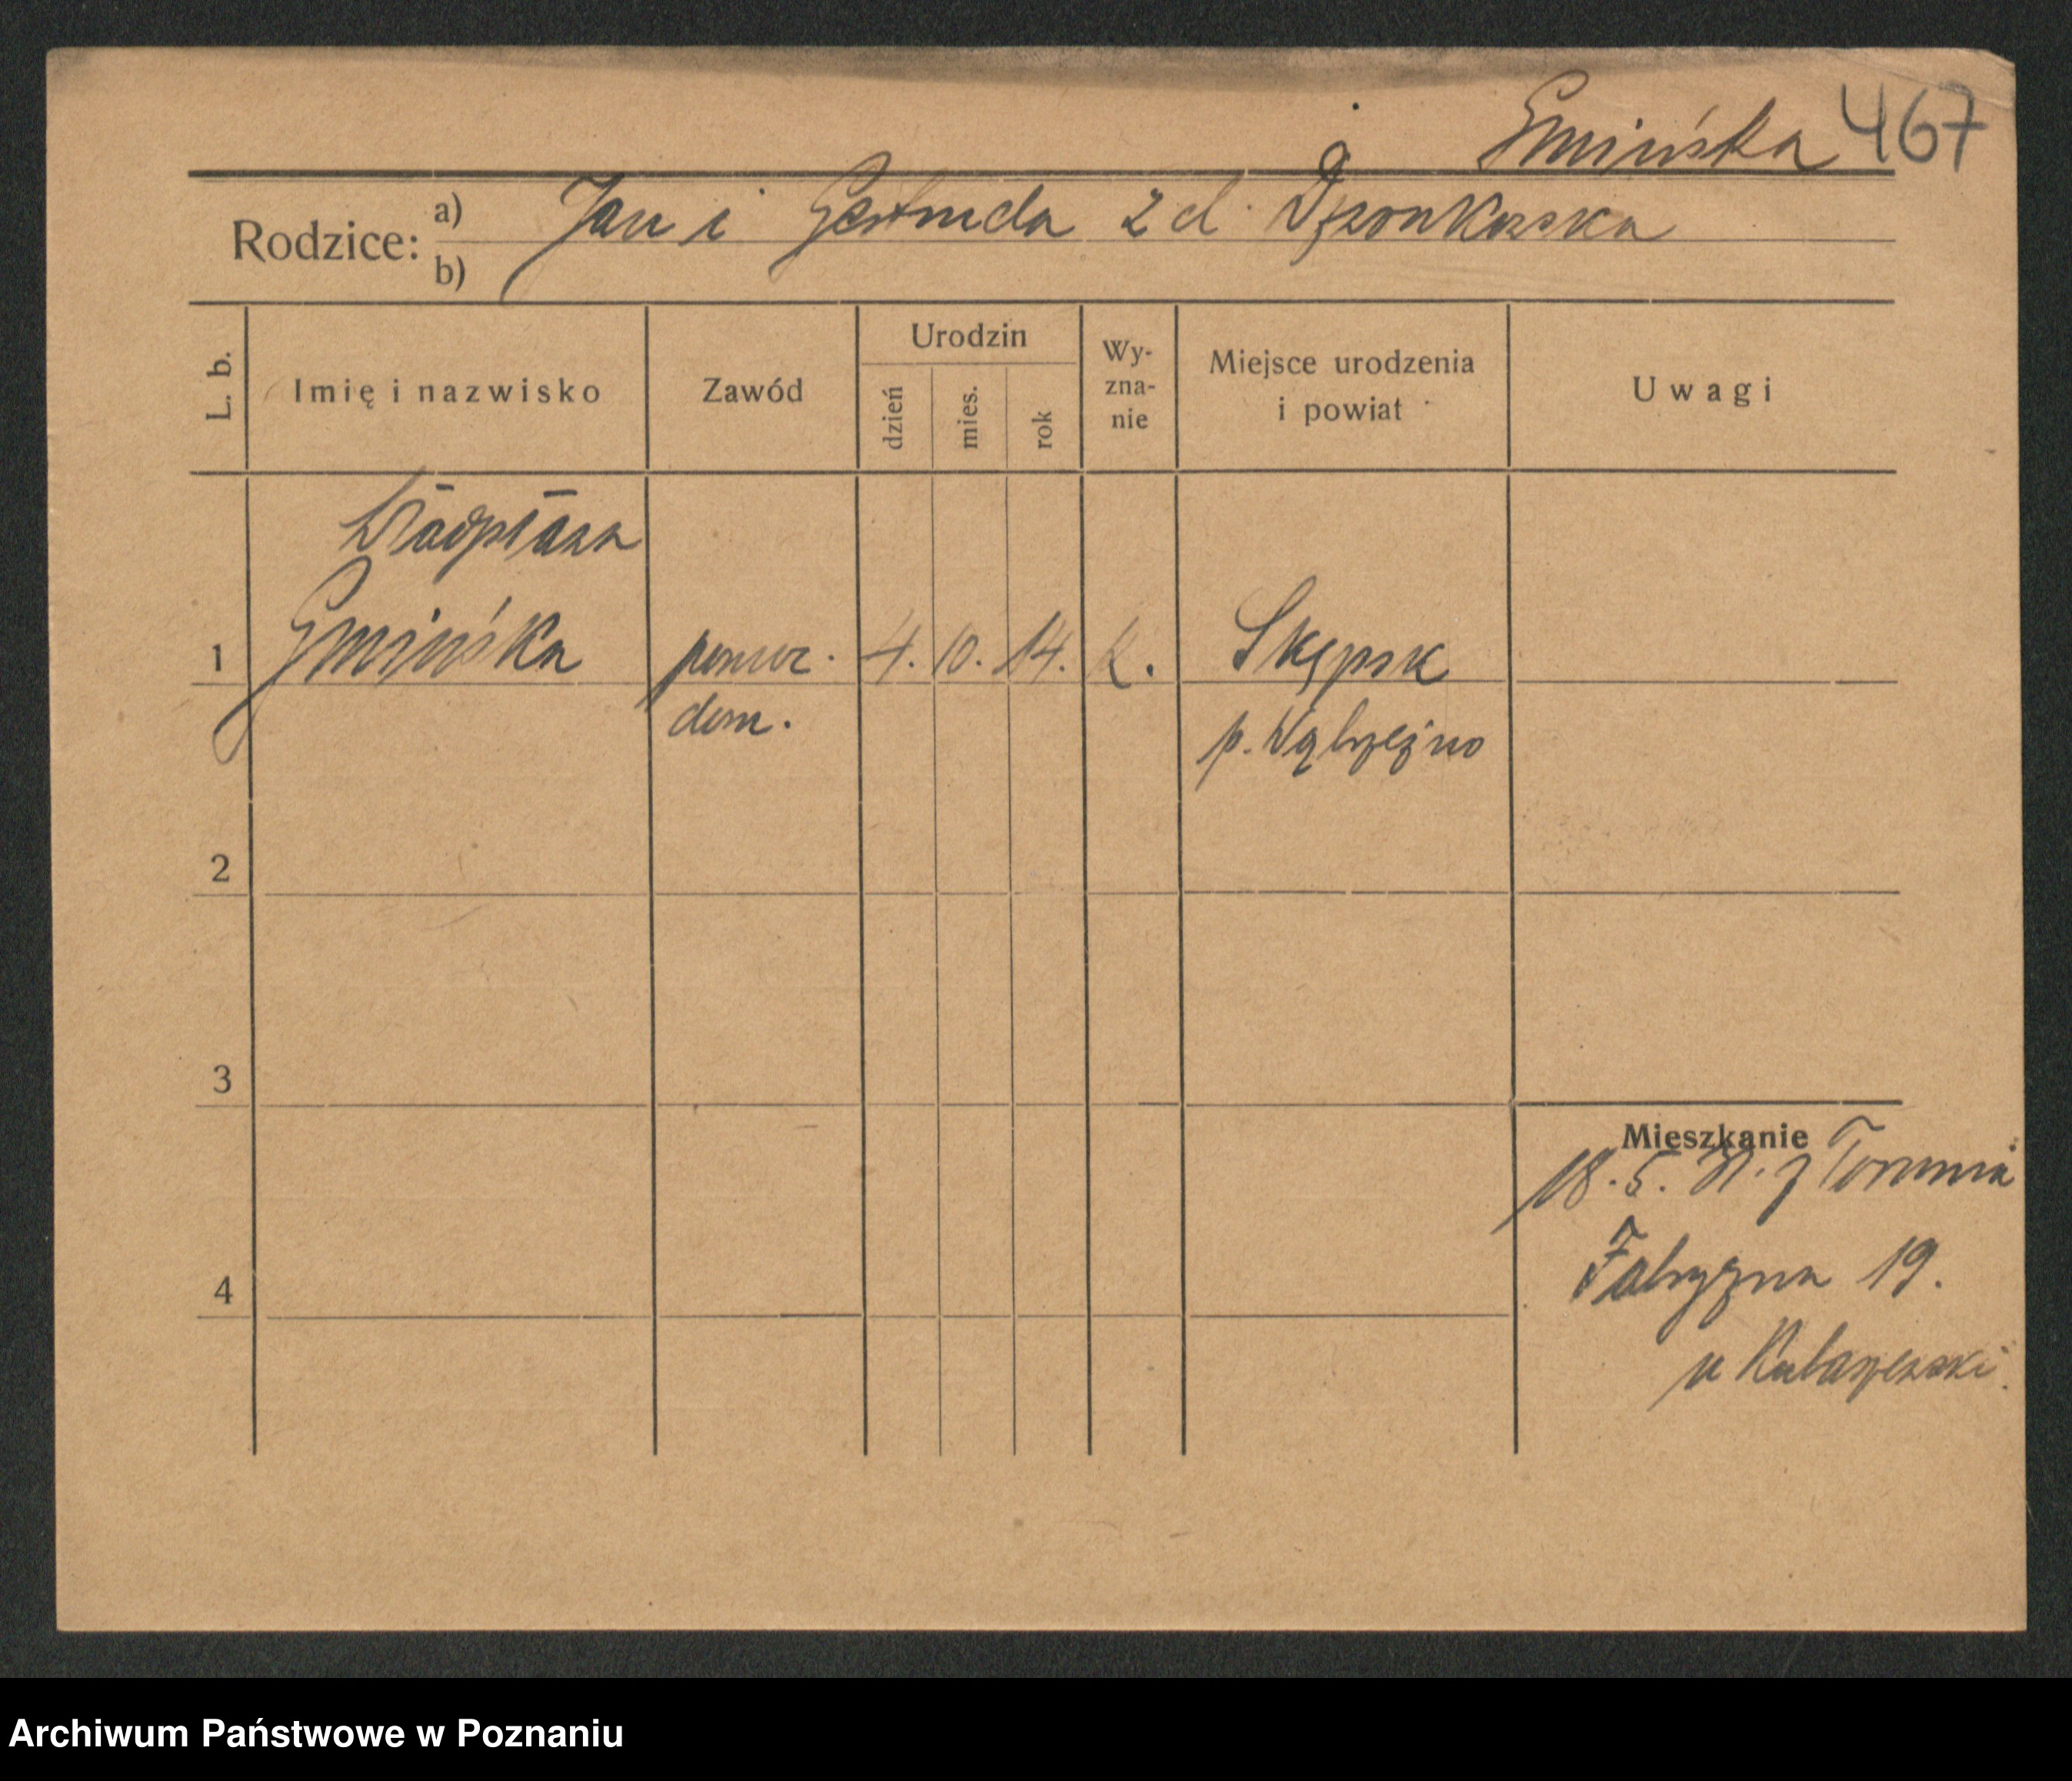 Gmińska 467
Rodzice: a) Jan i Gertruda z d. Dzionkowska
b)
L. b.
Imię i nazwisko
Zawód
Urodzin
dzień
mies.
rok
Wy-
zna-
nie
Miejsce urodzenia
i powiat
Uwagi
Władysława
1 Gmińska pomoc. 4. 10. 14. k. Skępsk
dom. p. Wąbrzeźno
2
3
4
Mieszkanie
18. 5. z Torunia
Fabryczna 19.
u
Archiwum Państwowe w Poznaniu